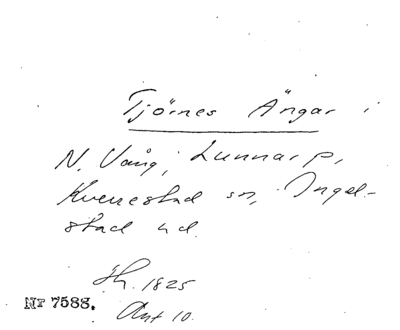 Tjörnes Ängar i
N. Vång, Lunnarp,
Kverrestad sn, Ingel-
stad hd.
Sk. 1825
Akt 10.
Nr 7588.